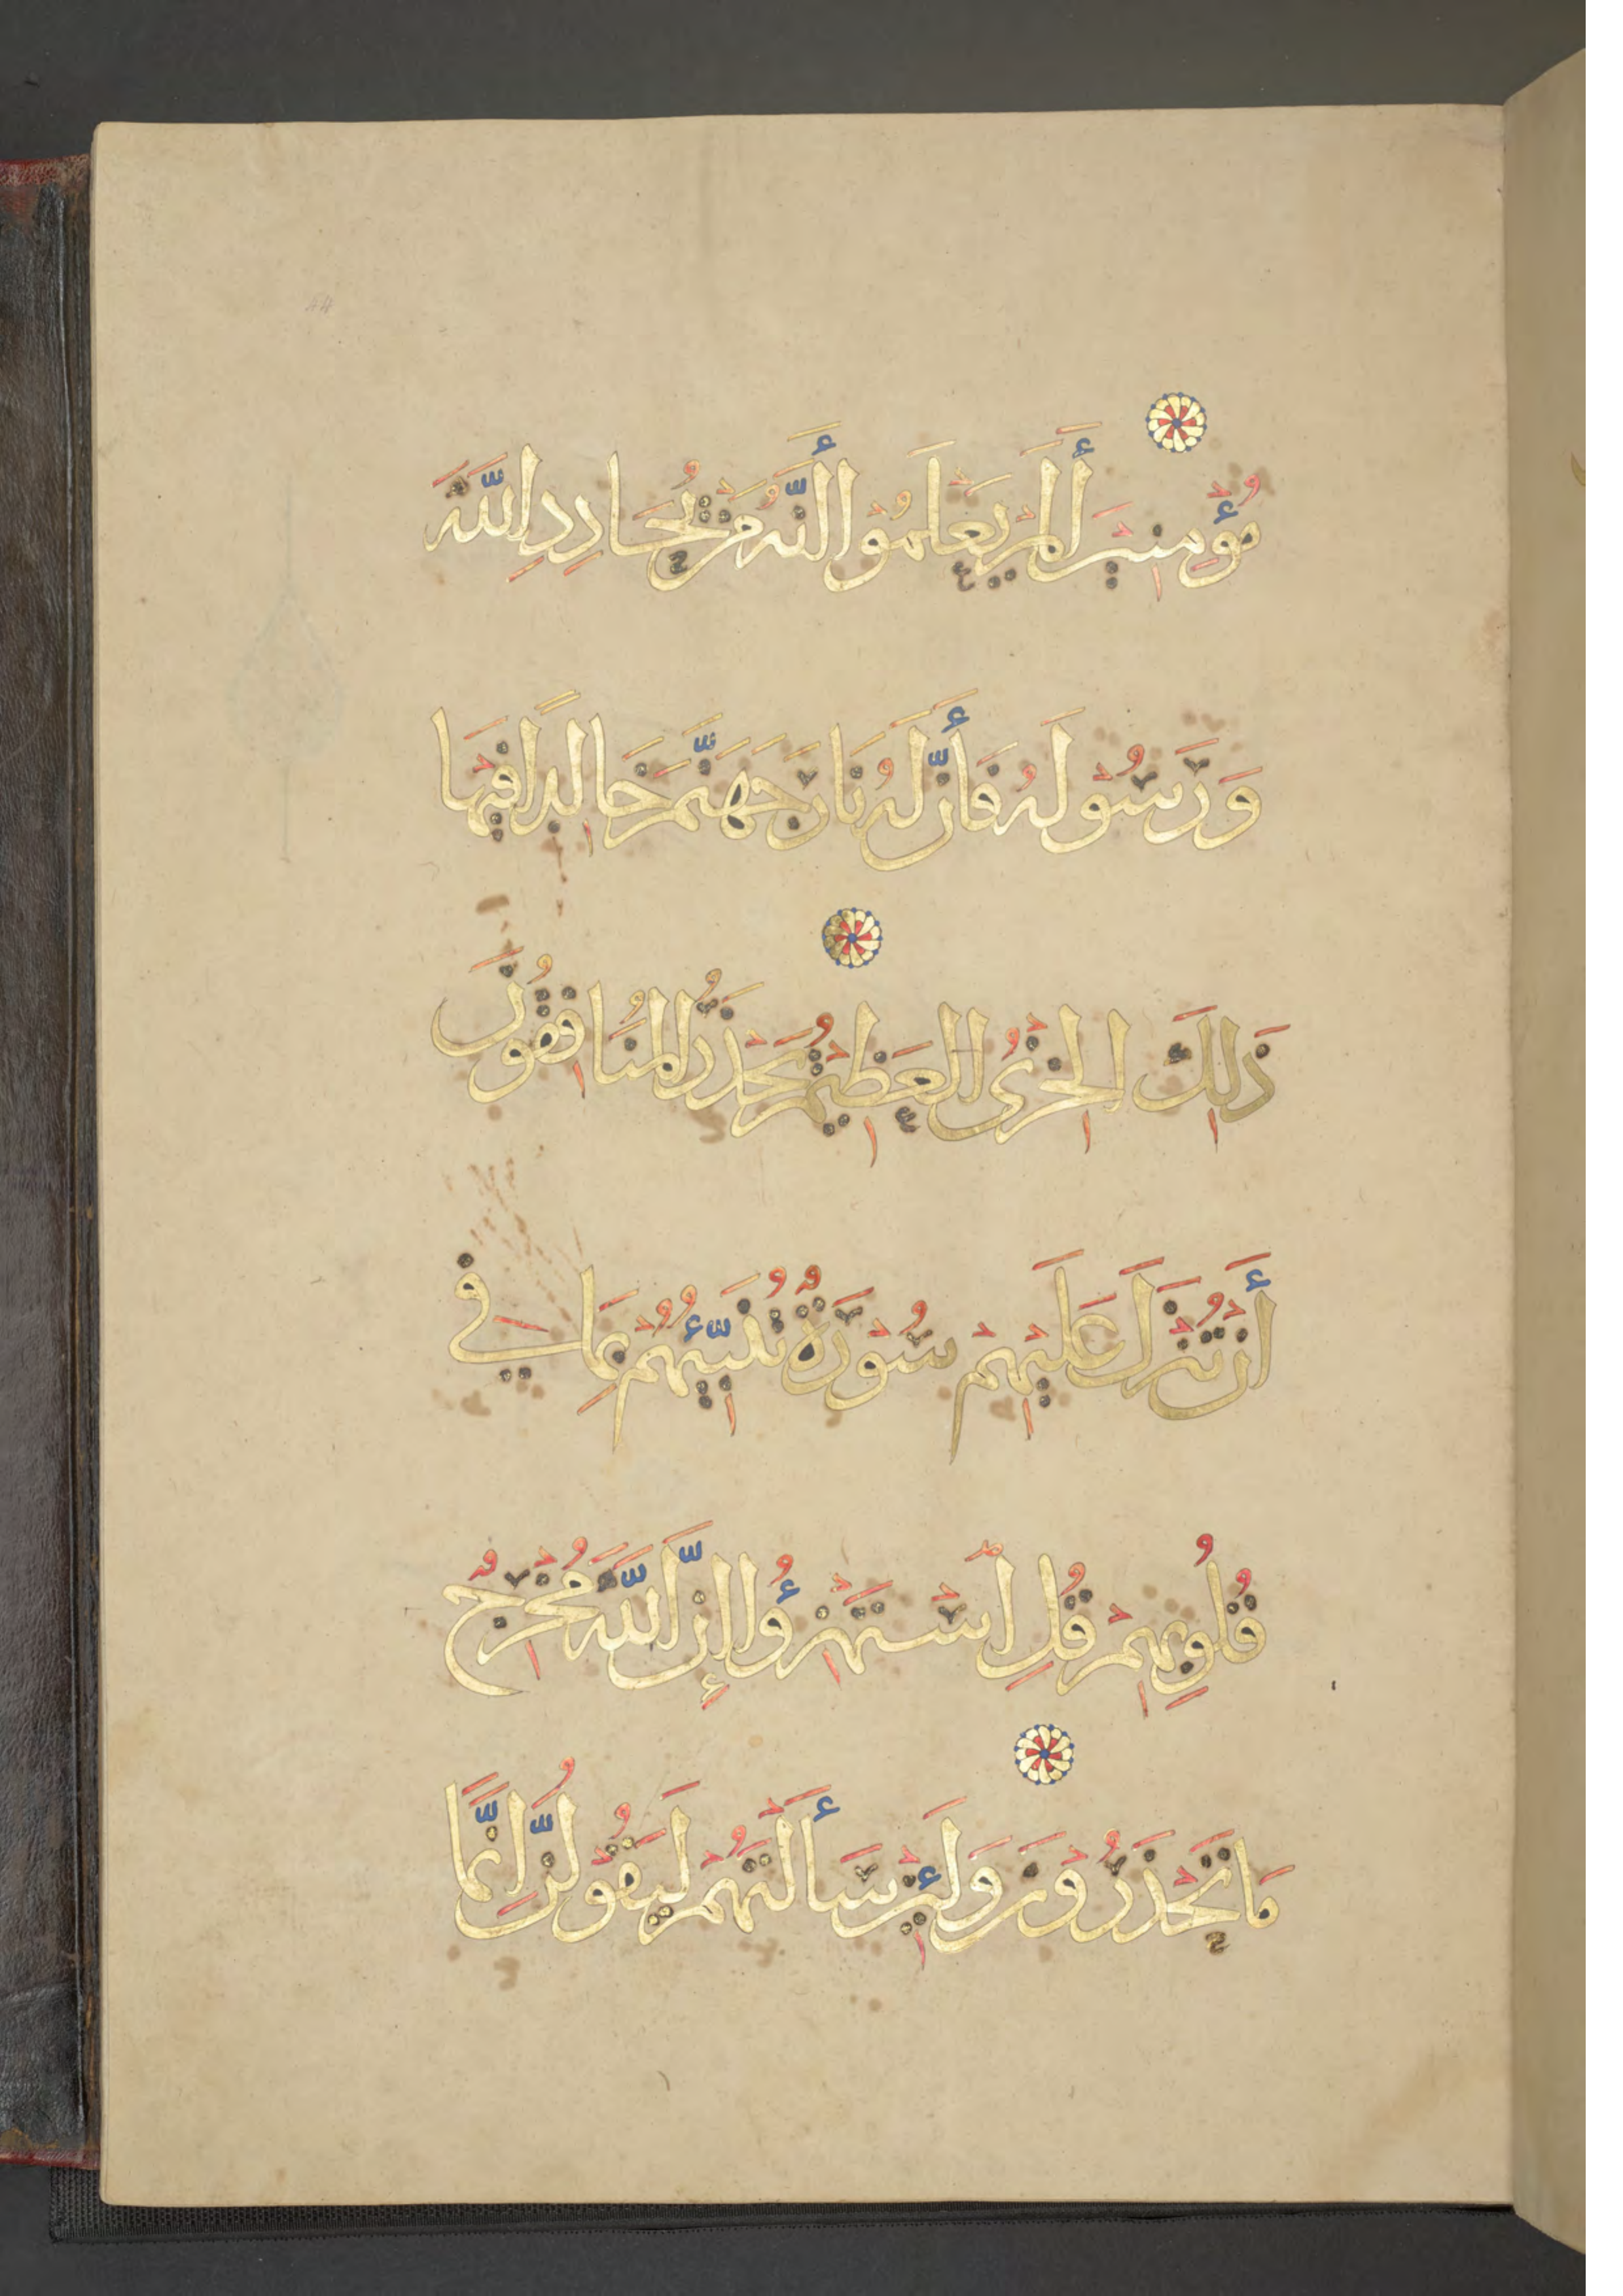 مُؤْمِنِينَ أَلَمْ يَعْلَمُوا أَنَّهُ مَنْ يُحَادِدِ اللَّهَ
وَرَسُولَهُ فَأَنَّ لَهُ نَارَ جَهَنَّمَ خَالِدًا فِيهَا
ذَلِكَ الْخِزْيُ الْعَظِيمُ يَحْذَرُ الْمُنَافِقُونَ
أَنْ تُنْزَلَ عَلَيْهِمْ سُورَةٌ تُنَبِّئُهُمْ بِمَا فِي
قُلُوبِهِمْ قُلِ اسْتَهْزِؤُا إِنَّ اللَّهَ مُخْرِجٌ
مَا تَحْذَرُونَ وَلَئِنْ سَأَلْتَهُمْ لَيَقُولُنَّ إِنَّمَا